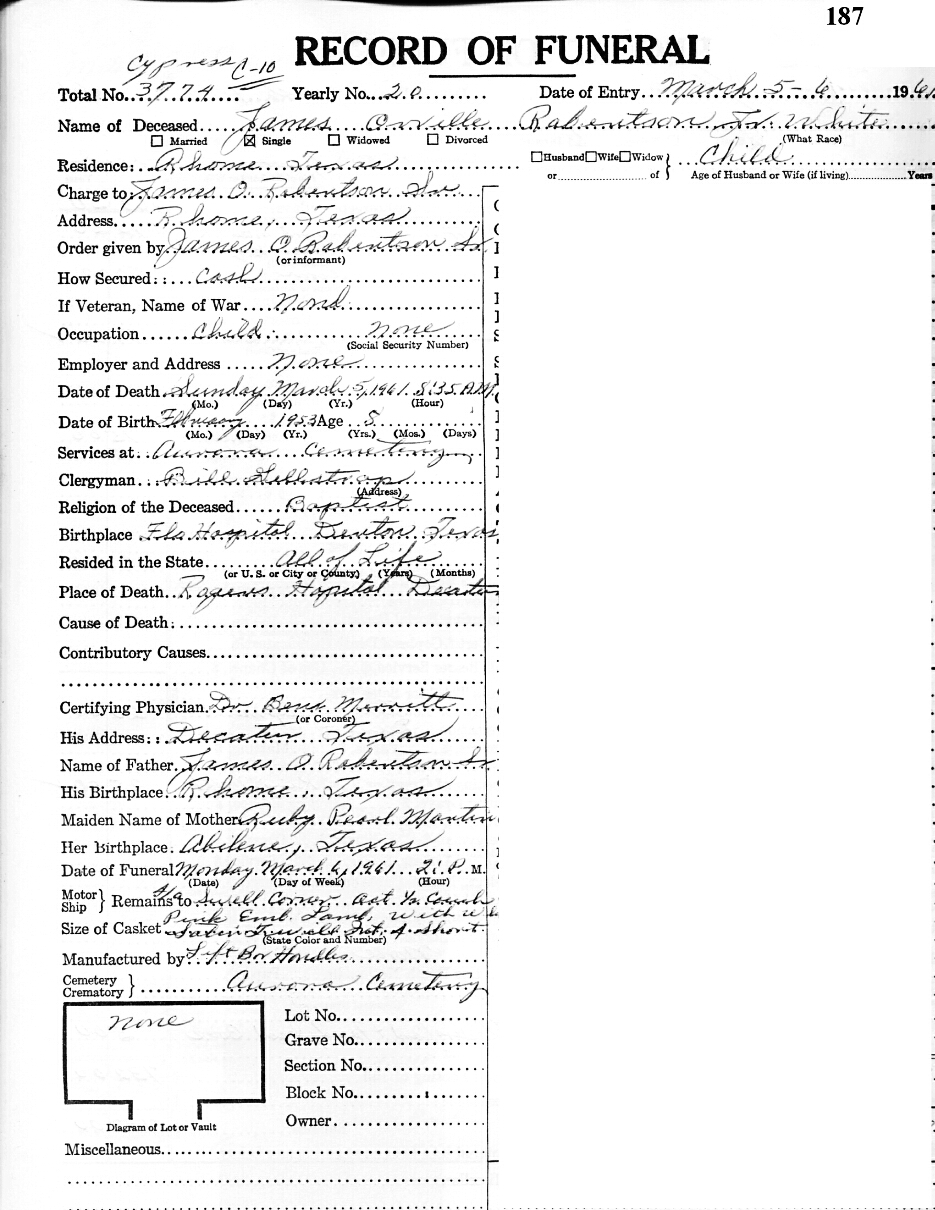 187
Cypress C-10
RECORD OF FUNERAL
Total No. 3774 Yearly No. 20 Date of Entry March 5-6 1961
Name of Deceased James Orville Robertson Jr. White
☐ Married ☒ Single ☐ Widowed ☐ Divorced (What Race)
Residence: Rhome Texas ☐Husband☐Wife☐Widow } Child
or of Age of Husband or Wife (if living) Years
Charge to James O. Robertson Sr
Address Rhome, Texas
Order given by James O. Robertson Sr
(or informant)
How Secured: Cash
If Veteran, Name of War None
Occupation Child None
(Social Security Number)
Employer and Address None
Date of Death Sunday March 5, 1961 8:35 A.M.
(Mo.) (Day) (Yr.) (Hour)
Date of Birth February 1953 Age 8
(Mo.) (Day) (Yr.) (Yrs.) (Mos.) (Days)
Services at: Aurora Cemetery
Clergyman Bill
(Address)
Religion of the Deceased Baptist
Birthplace Flo Hospital Denton Texas
Resided in the State All of Life
(or U. S. or City or County) (Years) (Months)
Place of Death Rogers Hospital Decatur
Cause of Death:
Contributory Causes
Certifying Physician Dr. Merritt
(or Coroner)
His Address: Decatur Texas
Name of Father James O. Robertson Sr
His Birthplace Rhome, Texas
Maiden Name of Mother Ruby Pearl Martin
Her Birthplace Abilene, Texas
Date of Funeral Monday March 6, 1961 2: P. M.
(Date) (Day of Week) (Hour)
Motor
Ship } Remains to Corner
Pink Emb. Lamb, with
Size of Casket
(State Color and Number)
Manufactured by Handles
Cemetery
Crematory } Aurora Cemetery
None
Lot No.
Grave No.
Section No.
Block No.
Owner
Diagram of Lot or Vault
Miscellaneous